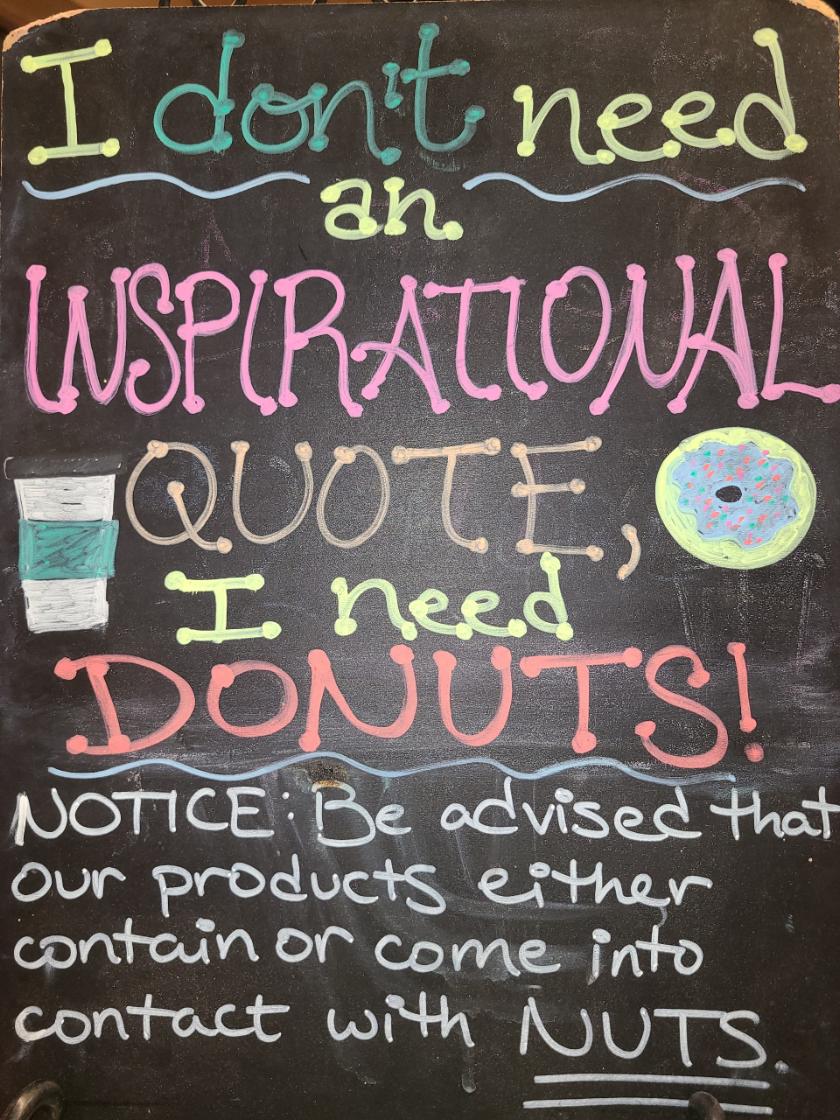 I don't need
an
INSPIRATIONAL
QUOTE,
I need
DONUTS!
NOTICE: Be advised that
our products either
contain or come into
contact with NUTS.